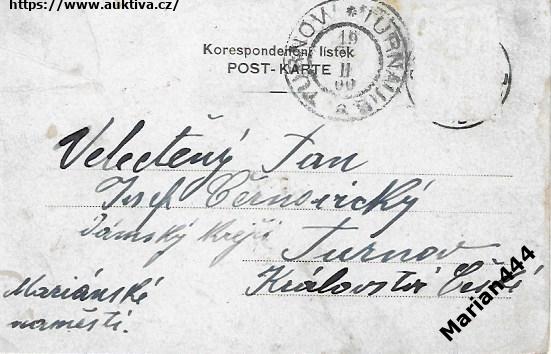 https://www.auktiva.cz/
Korespondenční lístek
POST-KARTE
TURNOV * TURNAU
19
II
00
Velectěný Pan
Josef Černovický
Dámský Krejčí
Turnov
Království České
Mariánské
naměstí.
Marian444